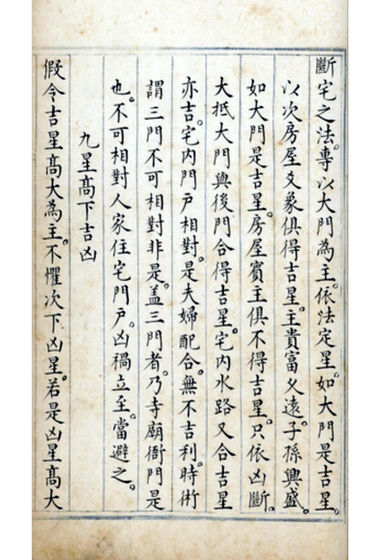 斷宅之法。專以大門為主。依法定星。如大門是吉星。
以次房屋爻象俱得吉星。主貴富久遠。子孫興盛。
如大門是吉星。房屋賓主俱不得吉星。只依凶斷。
大抵大門與後門合得吉星。宅內水路又合吉星
亦吉。宅內門戶相對。是夫婦配合。無不吉利。時術
謂三門不可相對非是。盖三門者。乃寺廟衙門是
也。不可相對人家住宅門戶。凶禍立至。當避之。
九星髙下吉凶
假令吉星髙大為主。不懼次下凶星。若是凶星髙大